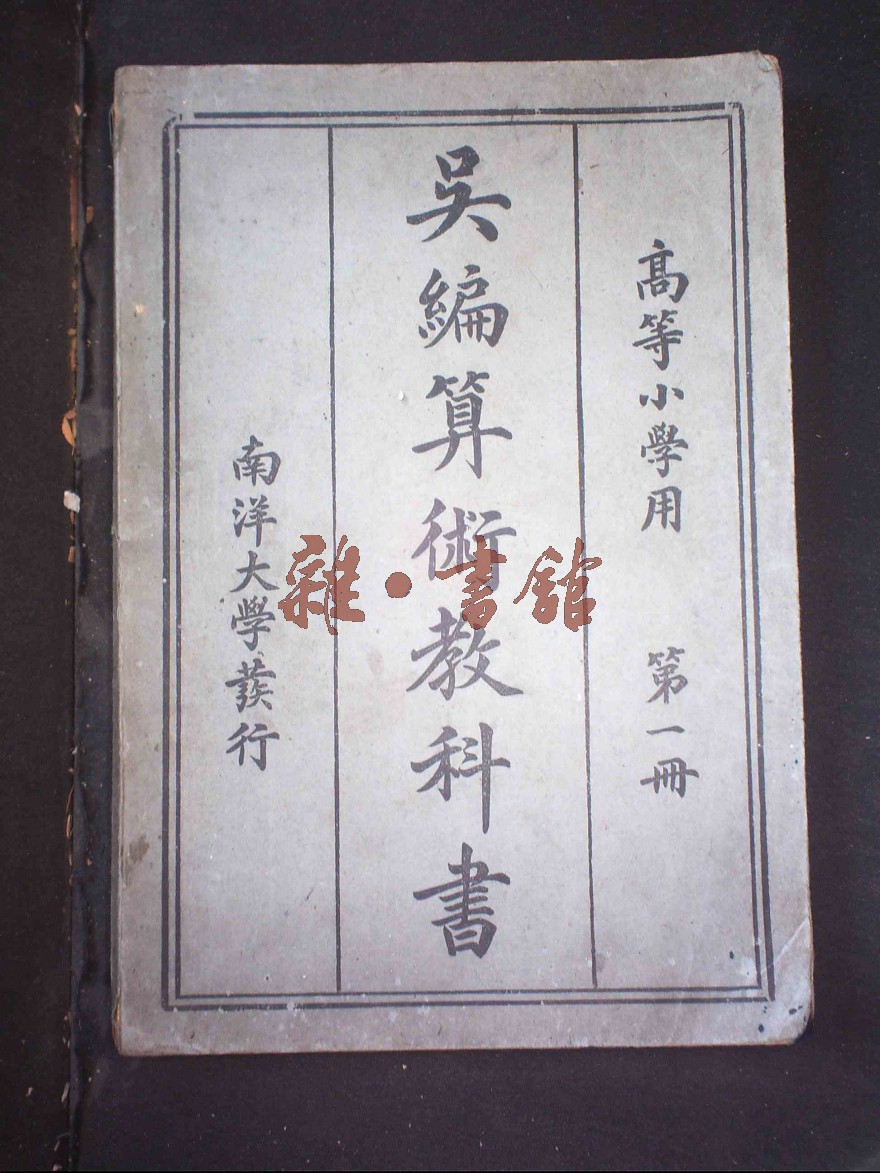 高等小學用　第一冊
吳編算術教科書
南洋大學發行
雜·書館